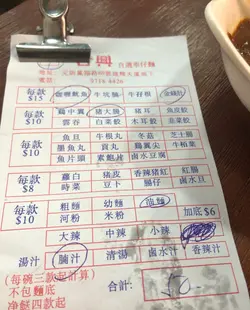 合興 自選車仔麵
電話: 5714 6626
每款 $15 咖喱魷魚 牛坑腩 牛孖根 金錢肚
每款 $10 雞中翼 豬大腸 豬耳 魚皮餃
雲吞 白菜餃 韮菜餃
每款 $10 魚豆 牛根丸 冬菇 芝士腸
墨魚丸 貢丸 雞翼尖 牛柏葉
魚片頭 素鮑片 鹵水豆腐
每款 $8 雞白 豬皮 香辣豬紅 紅腸
時菜 豆卜 腸仔 鹵水豆
每款 $10 粗麵 幼麵 油麵 加底 $6
河粉 米粉
大辣 中辣 小辣
湯汁 腩汁 清湯 鹵水汁 香辣汁
(每碗三款起計算)
不包麵底
淨餸四款起
合計: 50